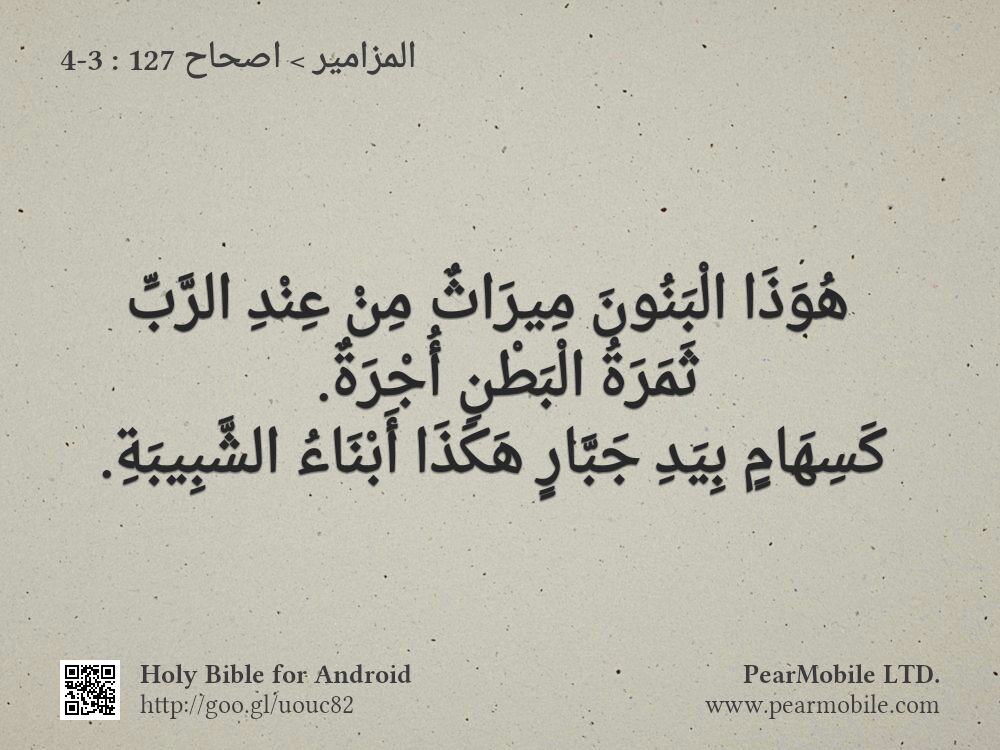 المزامير > اصحاح 127 : 3-4
هُوَذَا الْبَنُونَ مِيرَاثٌ مِنْ عِنْدِ الرَّبِّ
ثَمَرَةُ الْبَطْنِ أُجْرَةٌ.
كَسِهَامٍ بِيَدِ جَبَّارٍ هَكَذَا أَبْنَاءُ الشَّبِيبَةِ.
Holy Bible for Android
http://goo.gl/uouc82
PearMobile LTD.
www.pearmobile.com